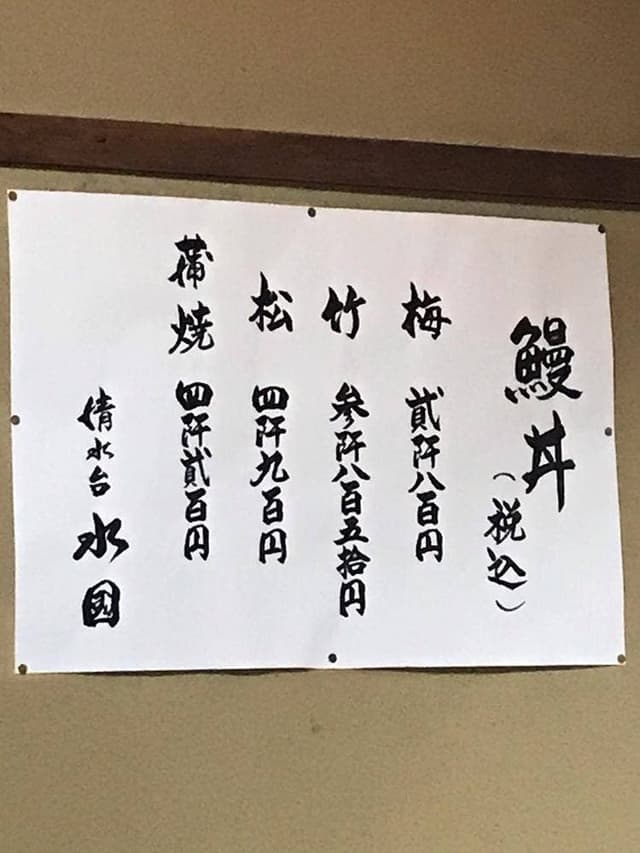 鰻丼
（税込）
梅 貮阡八百円
竹 参阡八百五拾円
松 四阡九百円
蒲焼 四阡貮百円
清水台 水國